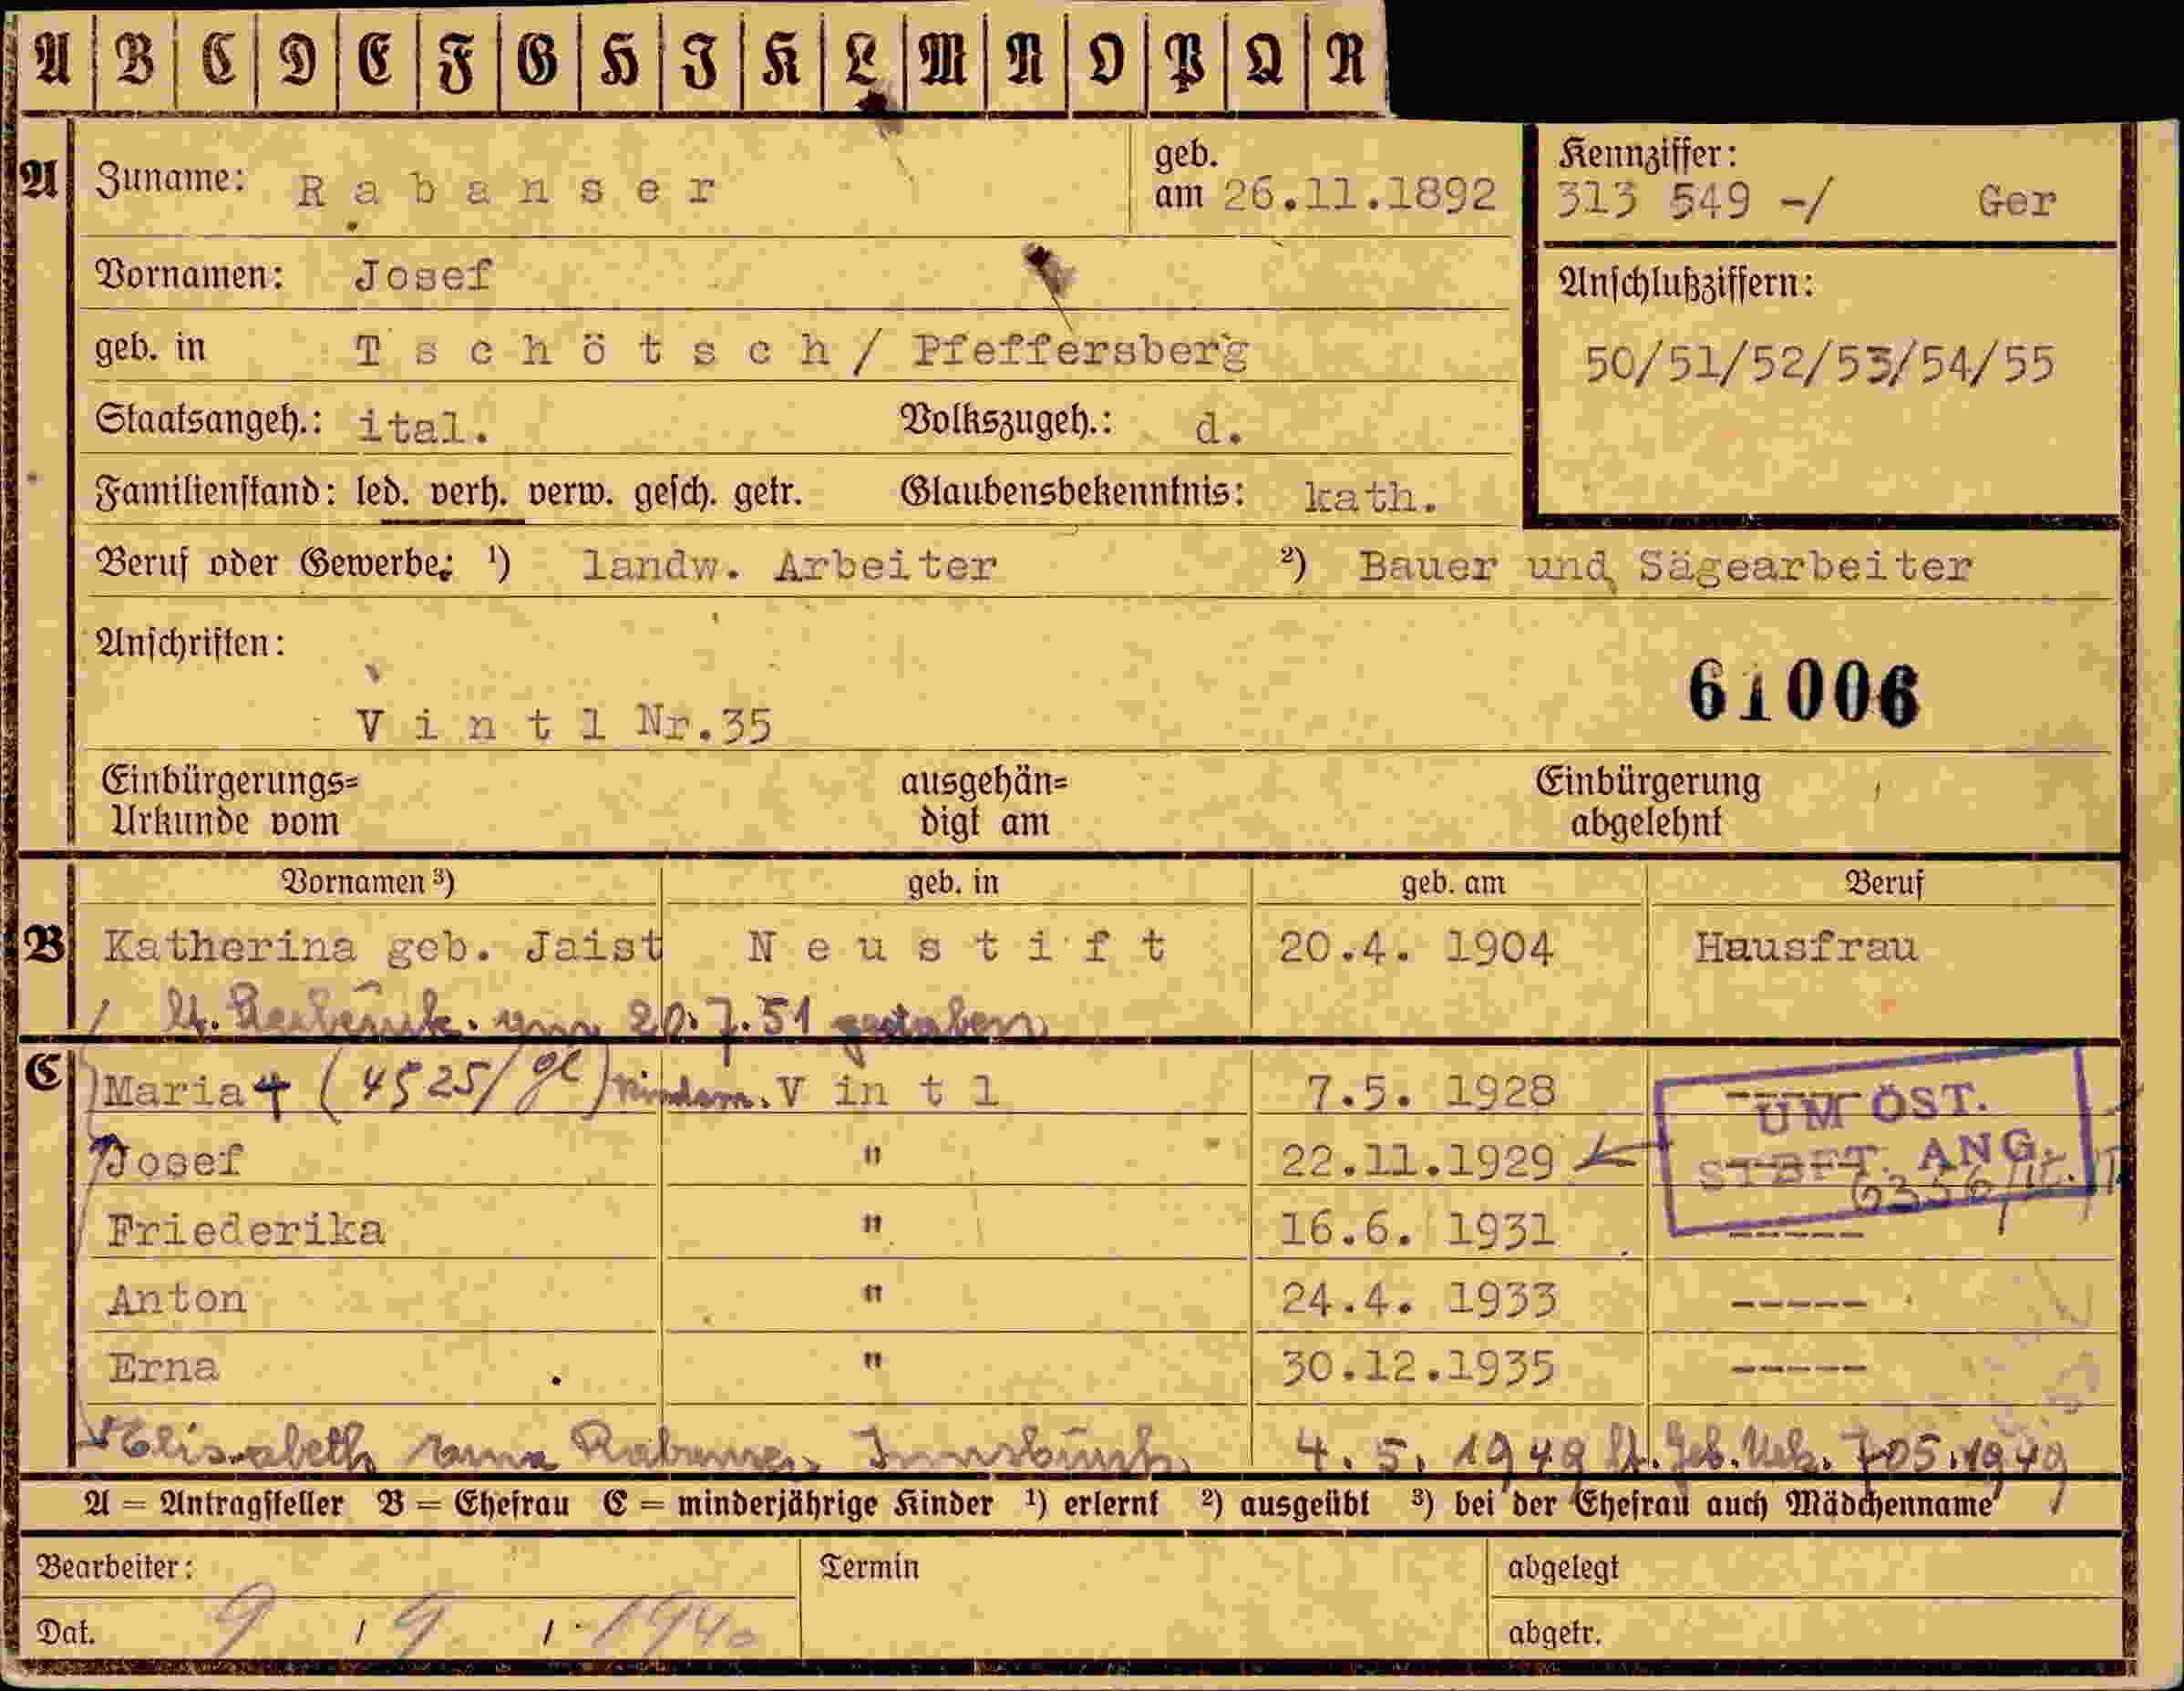 A B C D E F G H I K L M N O P Q R
A Zuname: Rabanser geb. am 26.11.1892 Kennziffer: 313 549 -/ Ger
Vornamen: Josef Anschlußziffern:
geb. in Tschötsch/ Pfeffersberg 50/51/52/53/54/55
Staatsangeh.: ital. Volkszugeh.: d.
Familienstand: led. verh. verw. gesch. getr. Glaubensbekenntnis: kath.
Beruf oder Gewerbe: ¹) landw. Arbeiter ²) Bauer und Sägearbeiter
Anschriften:
61006
Vintl Nr.35
Einbürgerungs= ausgehän= Einbürgerung
Urkunde vom digt am abgelehnt
Vornamen ³) geb. in geb. am Beruf
B Katherina geb. Jaist Neustift 20.4. 1904 Hausfrau
lt. 20.7.51 gestorben
C Maria (4525/ Vintl 7.5. 1928 -----
UM ÖST.
Josef " 22.11.1929
STBFT. ANG.
Friederika " 16.6. 1931 -----
Anton " 24.4. 1933 -----
Erna " 30.12.1935 -----
Elisabeth Innsbruck 4.5.1949 lt. Geb. Urk. 705.1949
A = Antragsteller B = Ehefrau C = minderjährige Kinder ¹) erlernt ²) ausgeübt ³) bei der Ehefrau auch Mädchenname
Bearbeiter: Termin abgelegt
Dat. 9 / 9 / 1940 abgetr.